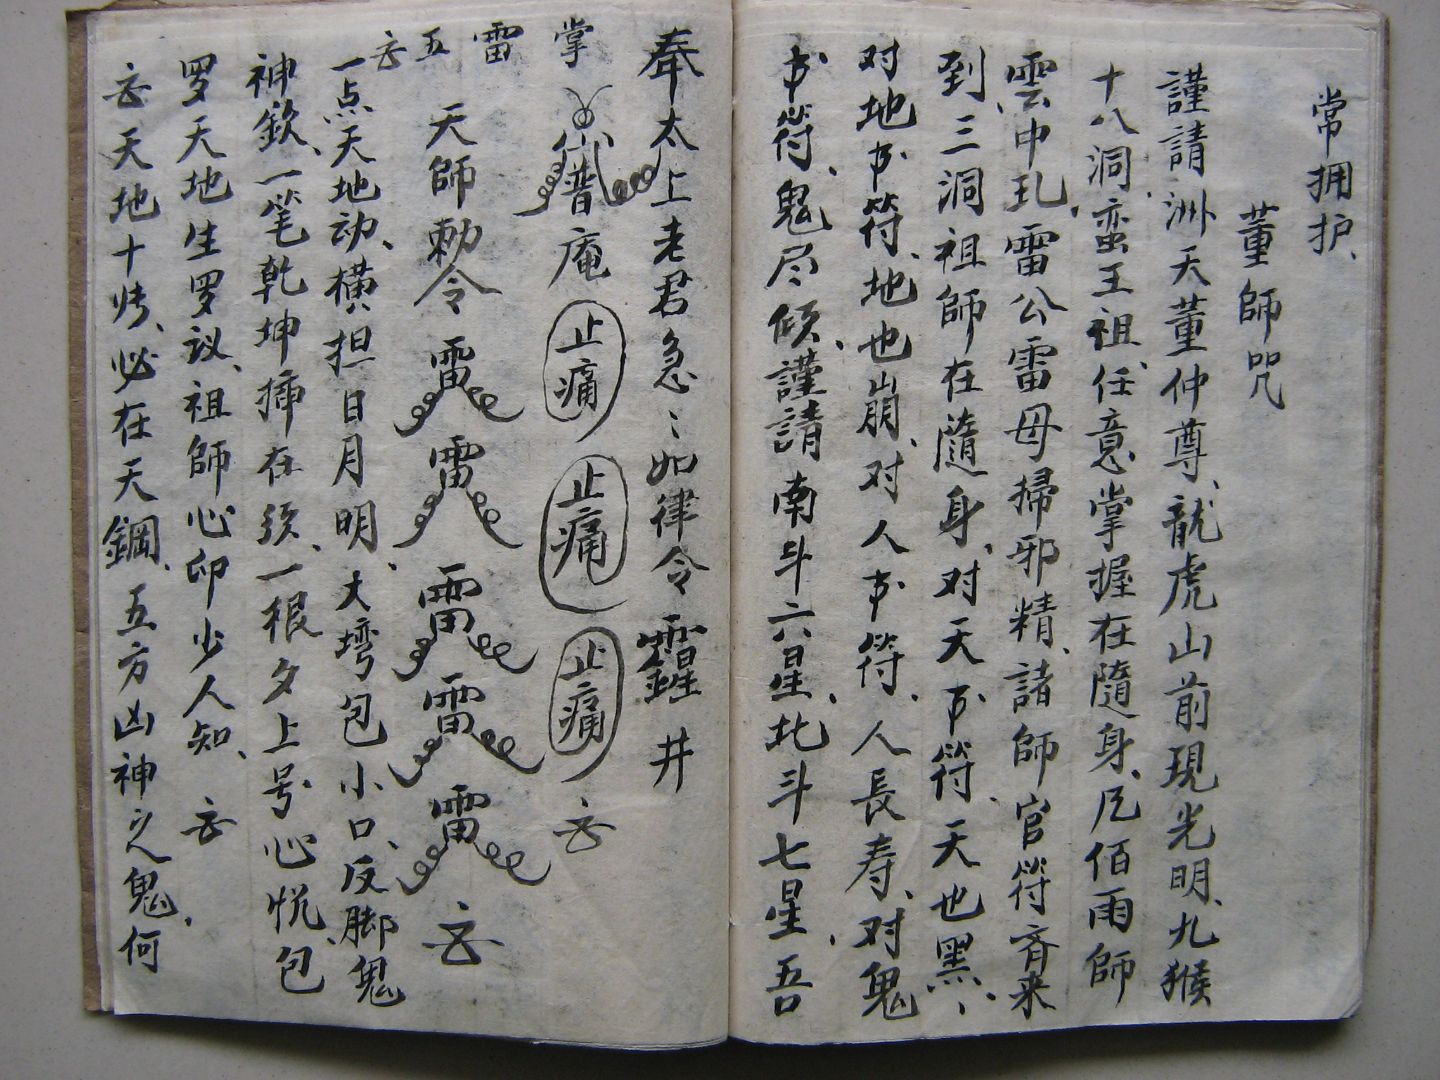 常拥护、
董師咒
謹請洲天董仲尊、龍虎山前現光明、九猴
十八洞、蛮王祖、任意掌握在隨身、凡佰雨師
雲中孔、雷公雷母掃邪精、諸師官符斉来
到、三洞祖師在隨身、对天书符、天也黑、
对地书符、地也崩、对人书符、人長寿、对鬼
书符、鬼尽倾、謹請南斗六星、北斗七星、吾
奉太上老君急〻如律令 井
掌
普庵 止痛 止痛 止痛
雷
五
天師勅令雷雷雷雷雷
一点天地动、横担日月明、大塆包小口、反脚鬼
神欽、一笔乾坤揷在须、一根夕上号、心悦、包
罗天地生罗议、祖師心印少人知、
天地十 、必在天鋼、五方凶神之鬼、何